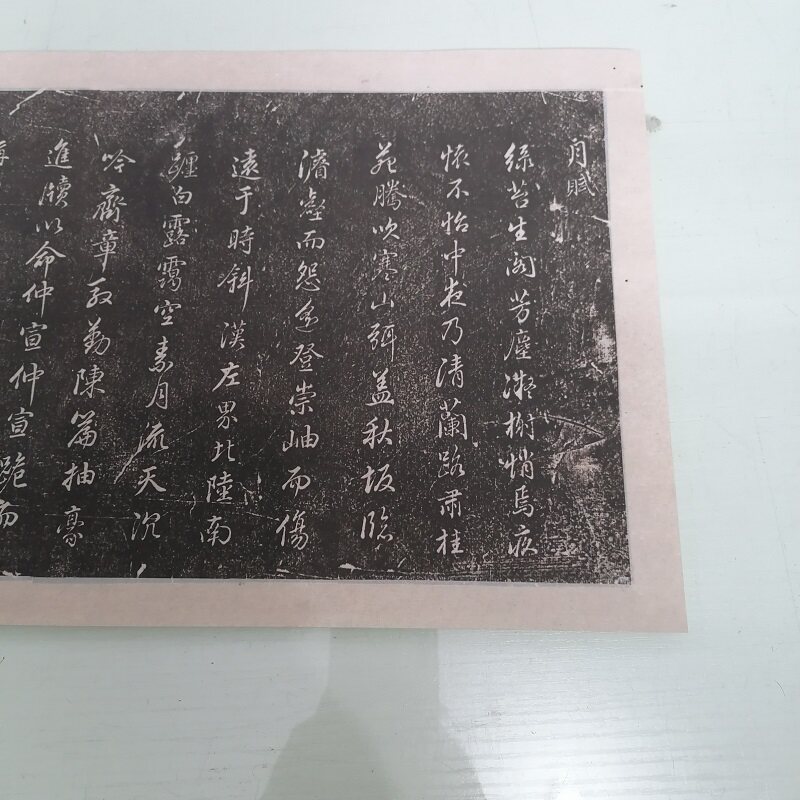 月賦
綠苔生閣芳塵凝榭悄焉疚
懷不怡中夜乃清蘭路肅桂
苑騰吹寒山弭盖秋坂臨
濬壑而怨遙登崇岫而傷
遠于時斜漢左界北陸南
躔白露靄空素月流天沉
吟齊章殷勤陳篇抽豪
進牘以命仲宣仲宣跪而